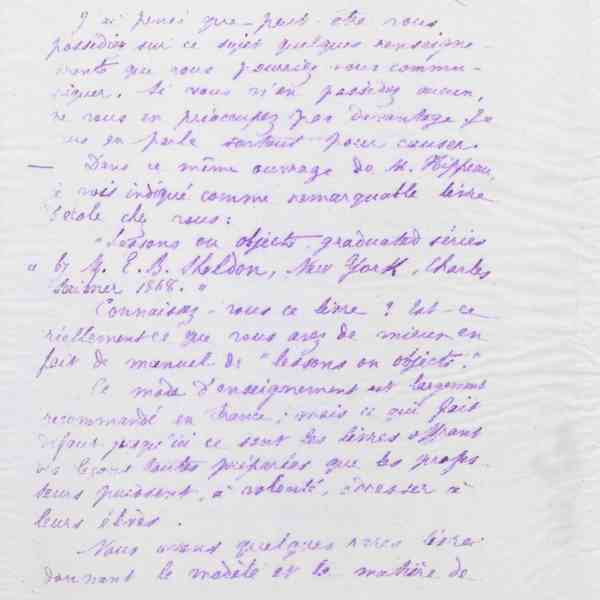 J'ai pensé que peut-être vous
possédiez sur ce sujet quelques renseigne-
ments que vous pourriez nous commu-
niquer. Si vous n'en possédez aucun,
ne vous en préoccupez pas davantage. Je
vous en parle surtout pour causer.
— Dans ce même ouvrage de M. Hippeau,
je vois indiqué comme remarquable livre
d'école chez vous :
"Lessons on objects, graduated séries
" by M. E. B. Sheldon, New York, Charles
Scribner 1868. "
Connaissez-vous ce livre ? Est-ce
réellement ce que vous avez de mieux en
fait de manuel de "lessons on objects."
Ce mode d'enseignement est largement
recommandé en France ; mais ce qui fait
défaut jusqu'ici ce sont les livres offrant
des leçons toutes préparées que les profes-
seurs puissent, à volonté, adresser à
leurs élèves.
Nous avons quelques rares livres
donnant le modèle et la matière de